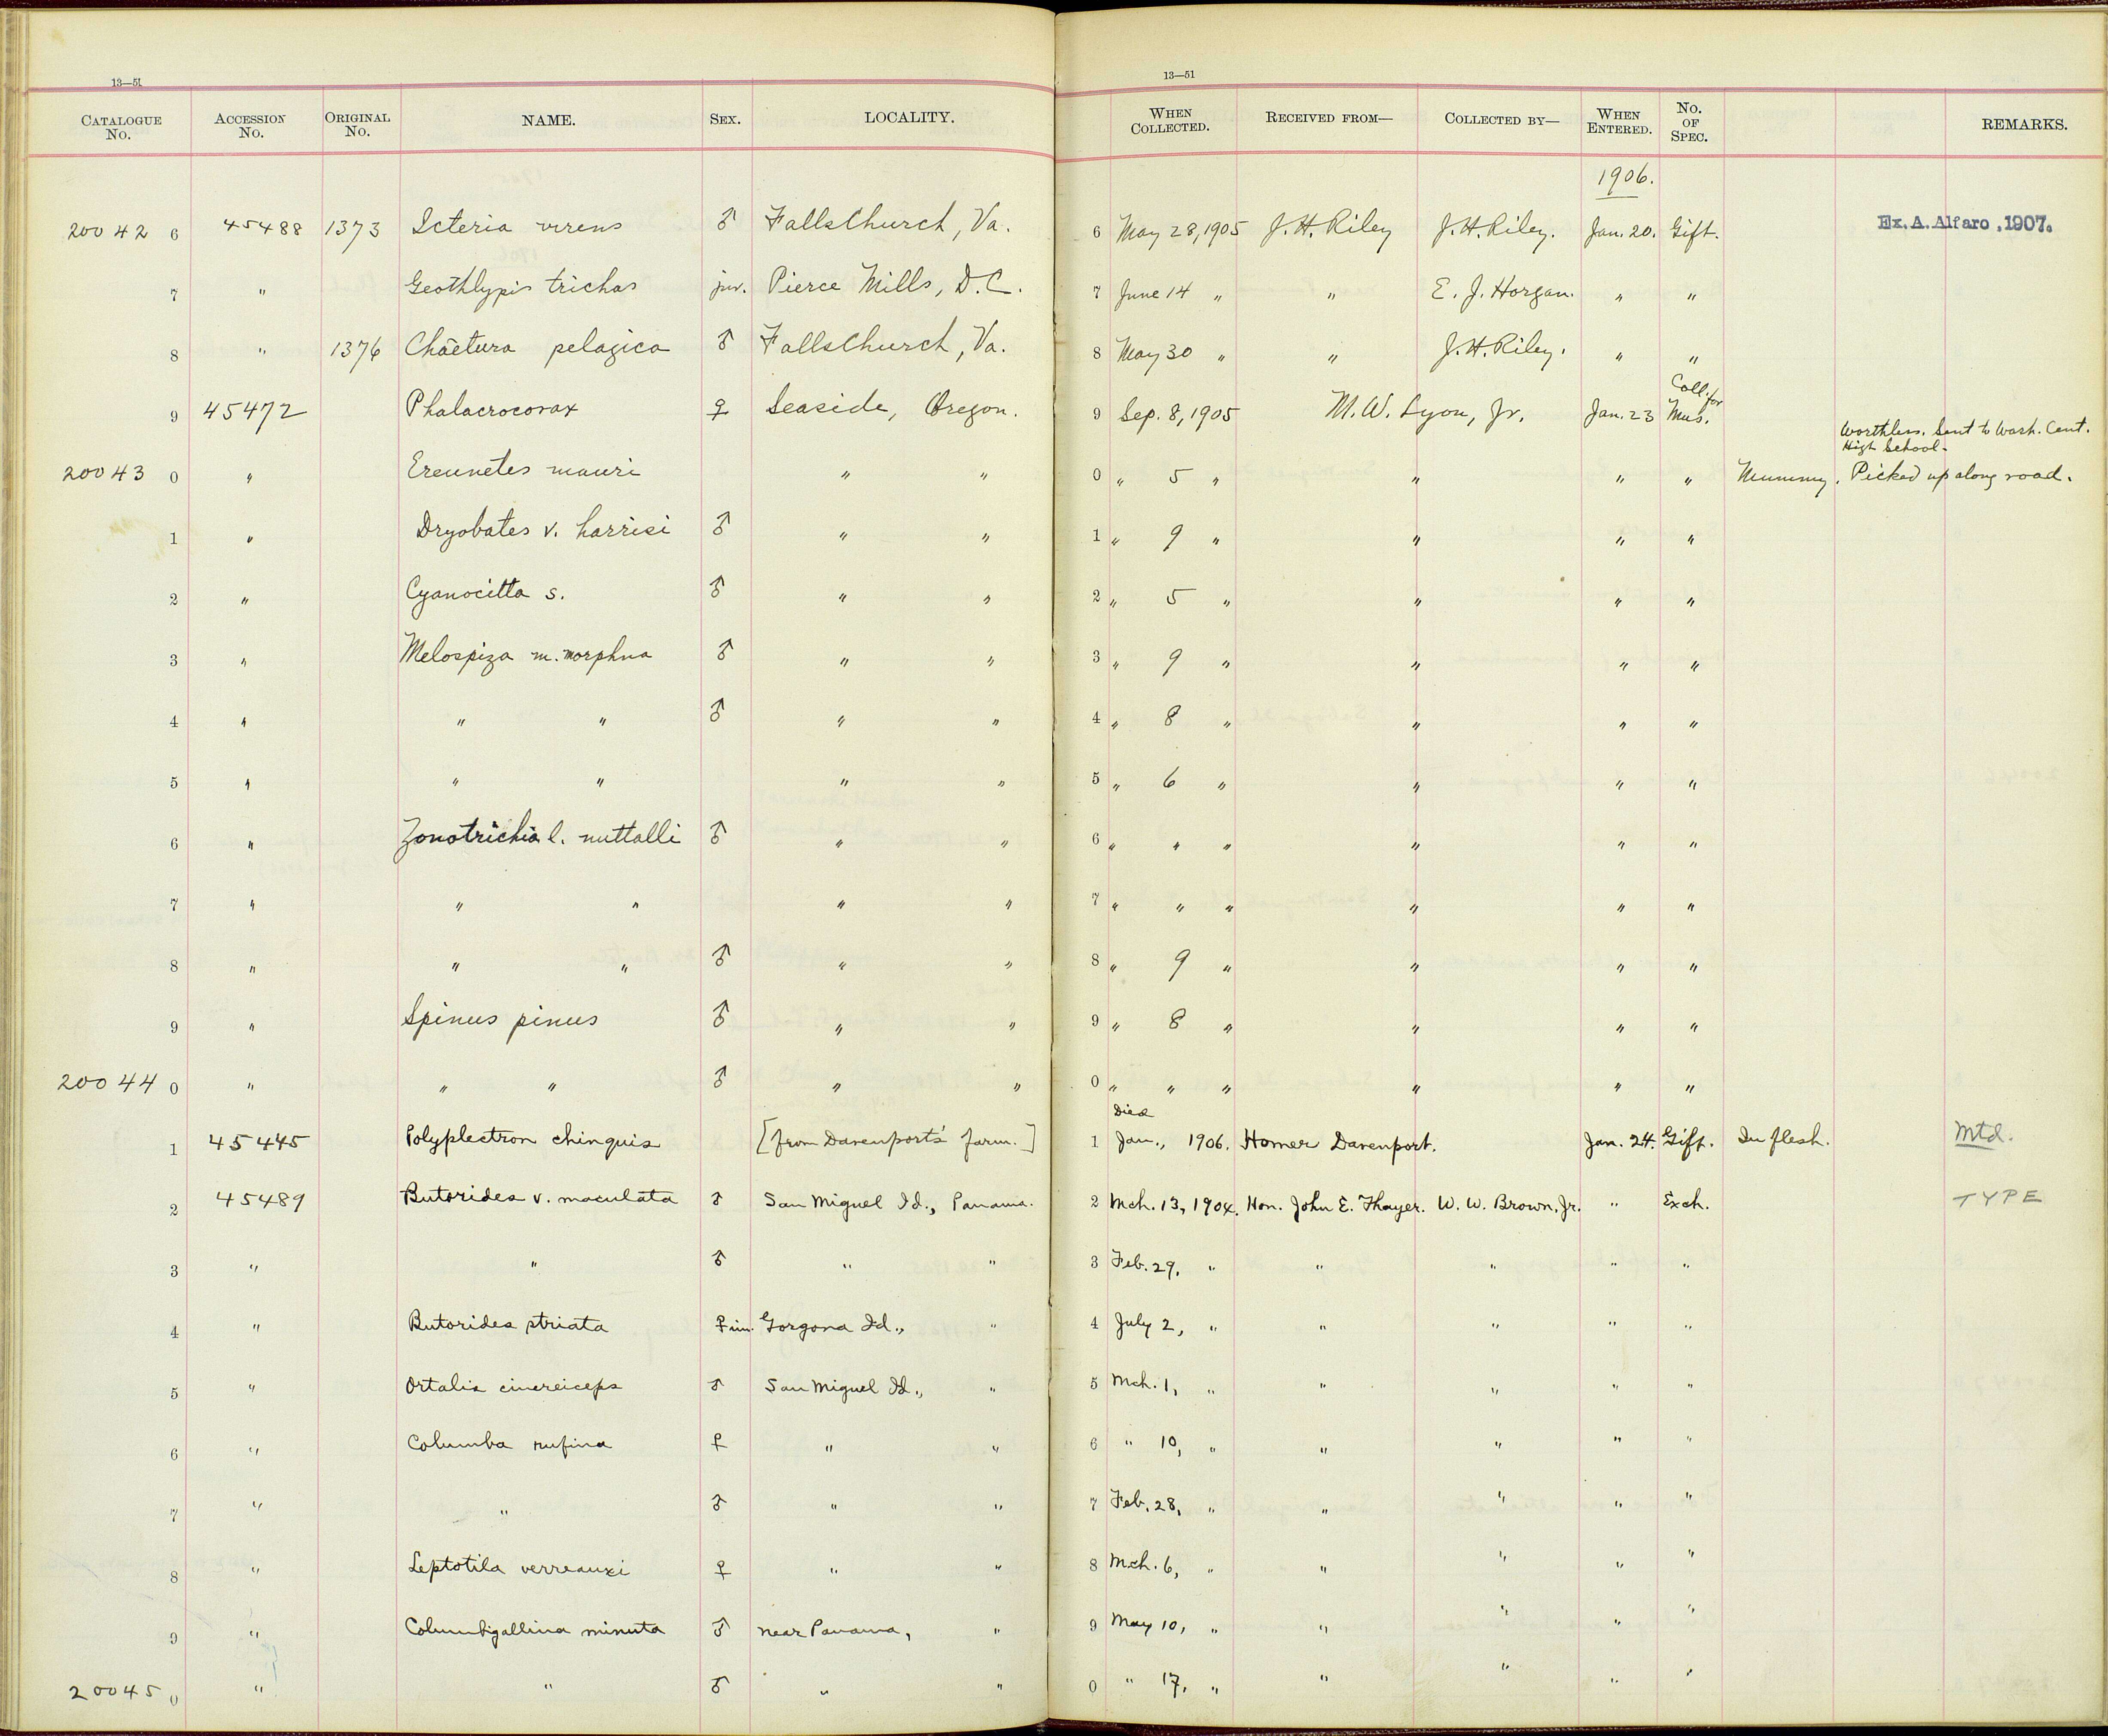 13—51 13—51
CATALOGUE No. ACCESSION No. ORIGINAL No. NAME. SEX. LOCALITY. WHEN COLLECTED. RECEIVED FROM— COLLECTED BY— WHEN ENTERED. No. OF SPEC. REMARKS.
1906.
20042 6 45488 1373 Icteria virens ♂ Falls Church, Va. 6 May 28, 1905 J. H. Riley J. H. Riley. Jan. 20. Gift. Ex. A. Alfaro, 1907.
7 " Geothlypis trichas juv. Pierce Mills, D.C. 7 June 14 " " E. J. Horgan. " "
8 " 1376 Chaetura pelagica ♂ Falls Church, Va. 8 May 30 " " J. H. Riley. " "
9 45472 Phalacrocorax ♀ Seaside, Oregon. 9 Sep. 8, 1905 M. W. Lyon, Jr. Jan. 23 Coll. for Mus.
Worthless. Sent to Wash. Cent. High School.
20043 0 " Ereunetes mauri " " 0 " 5 " " " " Mummy. Picked up along road.
1 " Dryobates v. harrisi ♂ " " 1 " 9 " " " "
2 " Cyanocitta s. ♂ " " 2 " 5 " " " "
3 " Melospiza m. morphna ♂ " " 3 " 9 " " " "
4 " " " ♂ " " 4 " 8 " " " "
5 " " " " " 5 " 6 " " " "
6 " Zonotrichia l. nuttalli ♂ " " 6 " " " " " "
7 " " " " " 7 " " " " " "
8 " " " ♂ " " 8 " 9 " " " "
9 " Spinus pinus ♂ " " 9 " 8 " " " "
20044 0 " " " ♂ " " 0 " " " " " "
1 45445 Polyplectron chinquis [from Davenport's farm.] 1 Died Jan., 1906. Homer Davenport. Jan. 24. Gift. In flesh. Mtd.
2 45489 Butorides v. maculata ♂ San Miguel Id., Panama. 2 Mch. 13, 1904. Hon. John E. Thayer. W. W. Brown, Jr. " Exch. TYPE
3 " " ♂ " " 3 Feb. 29, " " " " "
4 " Butorides striata ♀ im. Gorgona Id., " 4 July 2, " " " " "
5 " Ortalis cinereiceps ♂ San Miguel Id., " 5 Mch. 1, " " " " "
6 " Columba rufina ♀ " " 6 " 10, " " " " "
7 " " ♂ " " 7 Feb. 28, " " " " "
8 " Leptotila verreauxi ♀ " " 8 Mch. 6, " " " " "
9 " Columbigallina minuta ♂ near Panama, " 9 May 10, " " " " "
20045 0 " " ♂ " " 0 " 17, " " " " "